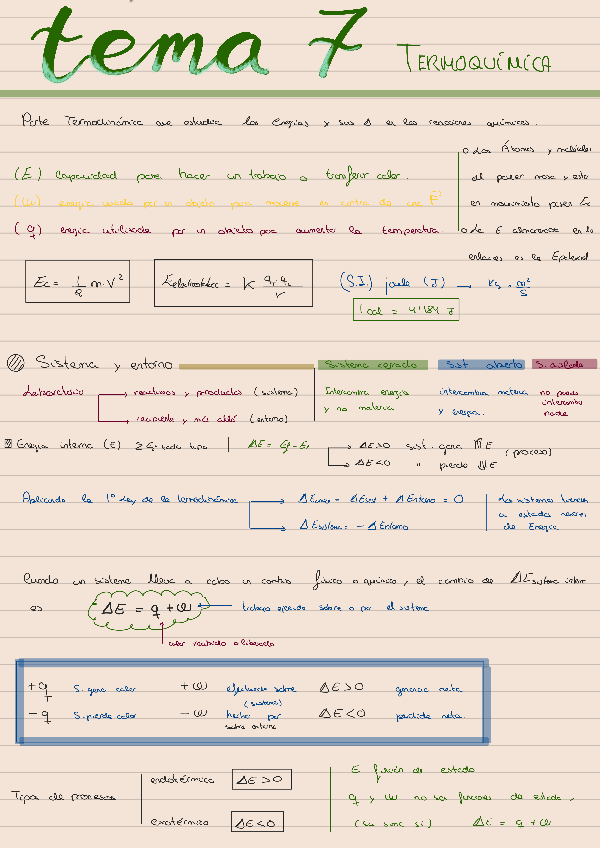 tema 7 TERMOQUÍMICA
Parte Termodinámica que estudia las Energías y sus Δ en las reacciones químicas.
(E) Capacidad para hacer un trabajo o transferir calor.
(W) energía usada por un objeto para moverse en contra de una F
(q) energía utilizada por un objeto para aumentar la temperatura.
o Los Átomos y moléculas
al poseer masa y estar
en movimiento poseen Ec
o La E almacenada en los
enlaces es la Epotencial
Ec = 1/2 m · V²
Eelectrostática = K q₁ q₂ / r
(S.I.) julio (J) → kg · m²/s
1 cal = 4'184 J
Sistema y entorno
Sistema cerrado
Intercambia energía
y no materia
Sist abierto
intercambia materia
y energía.
S. aislado
no puede
intercambiar
nada
Laboratorio → reactivos y productos (sistema)
→ recipiente y más allá (entorno)
Energía interna (E) ΣE cada tipo | ΔE = Ef - Ei → ΔE>0 sist. gana E
→ ΔE<0 " pierde E
(proceso)
Aplicando la 1º Ley de la termodinámica → ΔEuniver = ΔEsist + ΔEntorno = 0
→ ΔEsistema = - ΔEntorno
Los sistemas tienden
a estados menor
de Energía
Cuando un sistema lleva a cabo un cambio físico o químico, el cambio de ΔEsistema intern
es ΔE = q + W ← trabajo ejercido sobre o por el sistema
calor recibido o liberado
+q S. gana calor +W efectuado sobre (sistema) ΔE>0 ganancia neta.
-q S. pierde calor -W hecho por ΔE<0 pérdida neta.
Tipos de procesos
endotérmico ΔE>0
exotérmico ΔE<0
E función de estado
q y W no son funciones de estado,
(su suma sí) ΔE = q + W